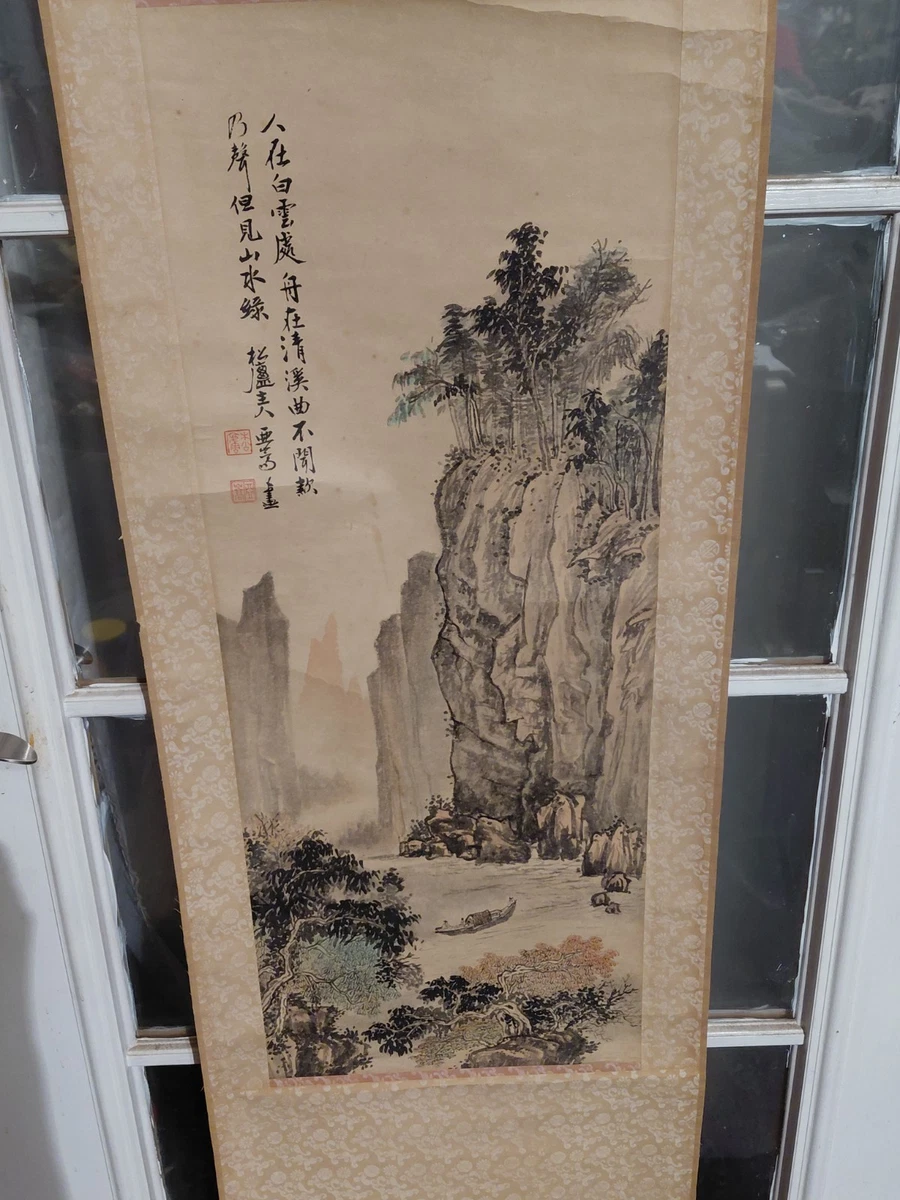 人在白雲處舟在清溪曲不聞欸
乃聲但見山水綠
松廬主人亞嵩畫